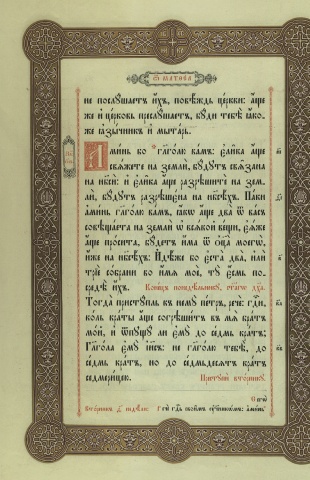 Ѿ матѳеа
не послꙋшаетъ и҆́хъ, повѣ́ждь цр҃кви: а҆́ще
же и҆ цр҃ковь преслꙋ́шаетъ, бꙋ́ди тебѣ̀ ꙗ҆́ко-
же ꙗ҆зы́чникъ и҆ мыта́рь.
А҆ми́нь бо гл҃голю ва́мъ: є҆ли̑ка а҆́ще
свѧ́жете на землѝ, бꙋ́дꙋтъ свѧ̑зана
на нб҃сѝ: и҆ є҆ли̑ка а҆́ще разрѣшитѐ на зем-
лѝ, бꙋ́дꙋтъ разрѣшє́на на нб҃сѣ́хъ. Па́ки
а҆ми́нь гл҃голю ва́мъ, ꙗ҆́кѡ а҆́ще два̀ ѿ ва́съ
совѣща́ета на землѝ ѡ҆ всѧ́кой ве́щи, є҆ѧ́же
а҆́ще про́сита, бꙋ́детъ и҆́ма ѿ ѻ҆ц҃а̀ моегѡ̀,
и҆́же на нб҃сѣ́хъ. И҆дѣ́же бо є҆ста̀ два̀, и҆лѝ
трїѐ со́брани во и҆́мѧ моѐ, тꙋ̀ є҆́смь по-
средѣ̀ и҆́хъ. Коне́цъ понедѣ́льникꙋ, ст҃а́гѡ дх҃а.
Тогда̀ пристꙋ́пль къ немꙋ̀ пе́тръ, речѐ: гдⷭ҇и,
ко́ль кра́ты а҆́ще согрѣши́тъ въ мѧ̀ бра́тъ
мо́й, и҆ ѿпꙋщꙋ́ ли є҆мꙋ̀ до се́дмь кра́тъ;
Гл҃го́ла є҆мꙋ̀ і҆и҃съ: не гл҃го́лю тебѣ̀, до
се́дмь кра́тъ, но до се́дмьдесѧтъ кра́тъ
седмери́цею. Пристꙋпѝ вто́рникꙋ.